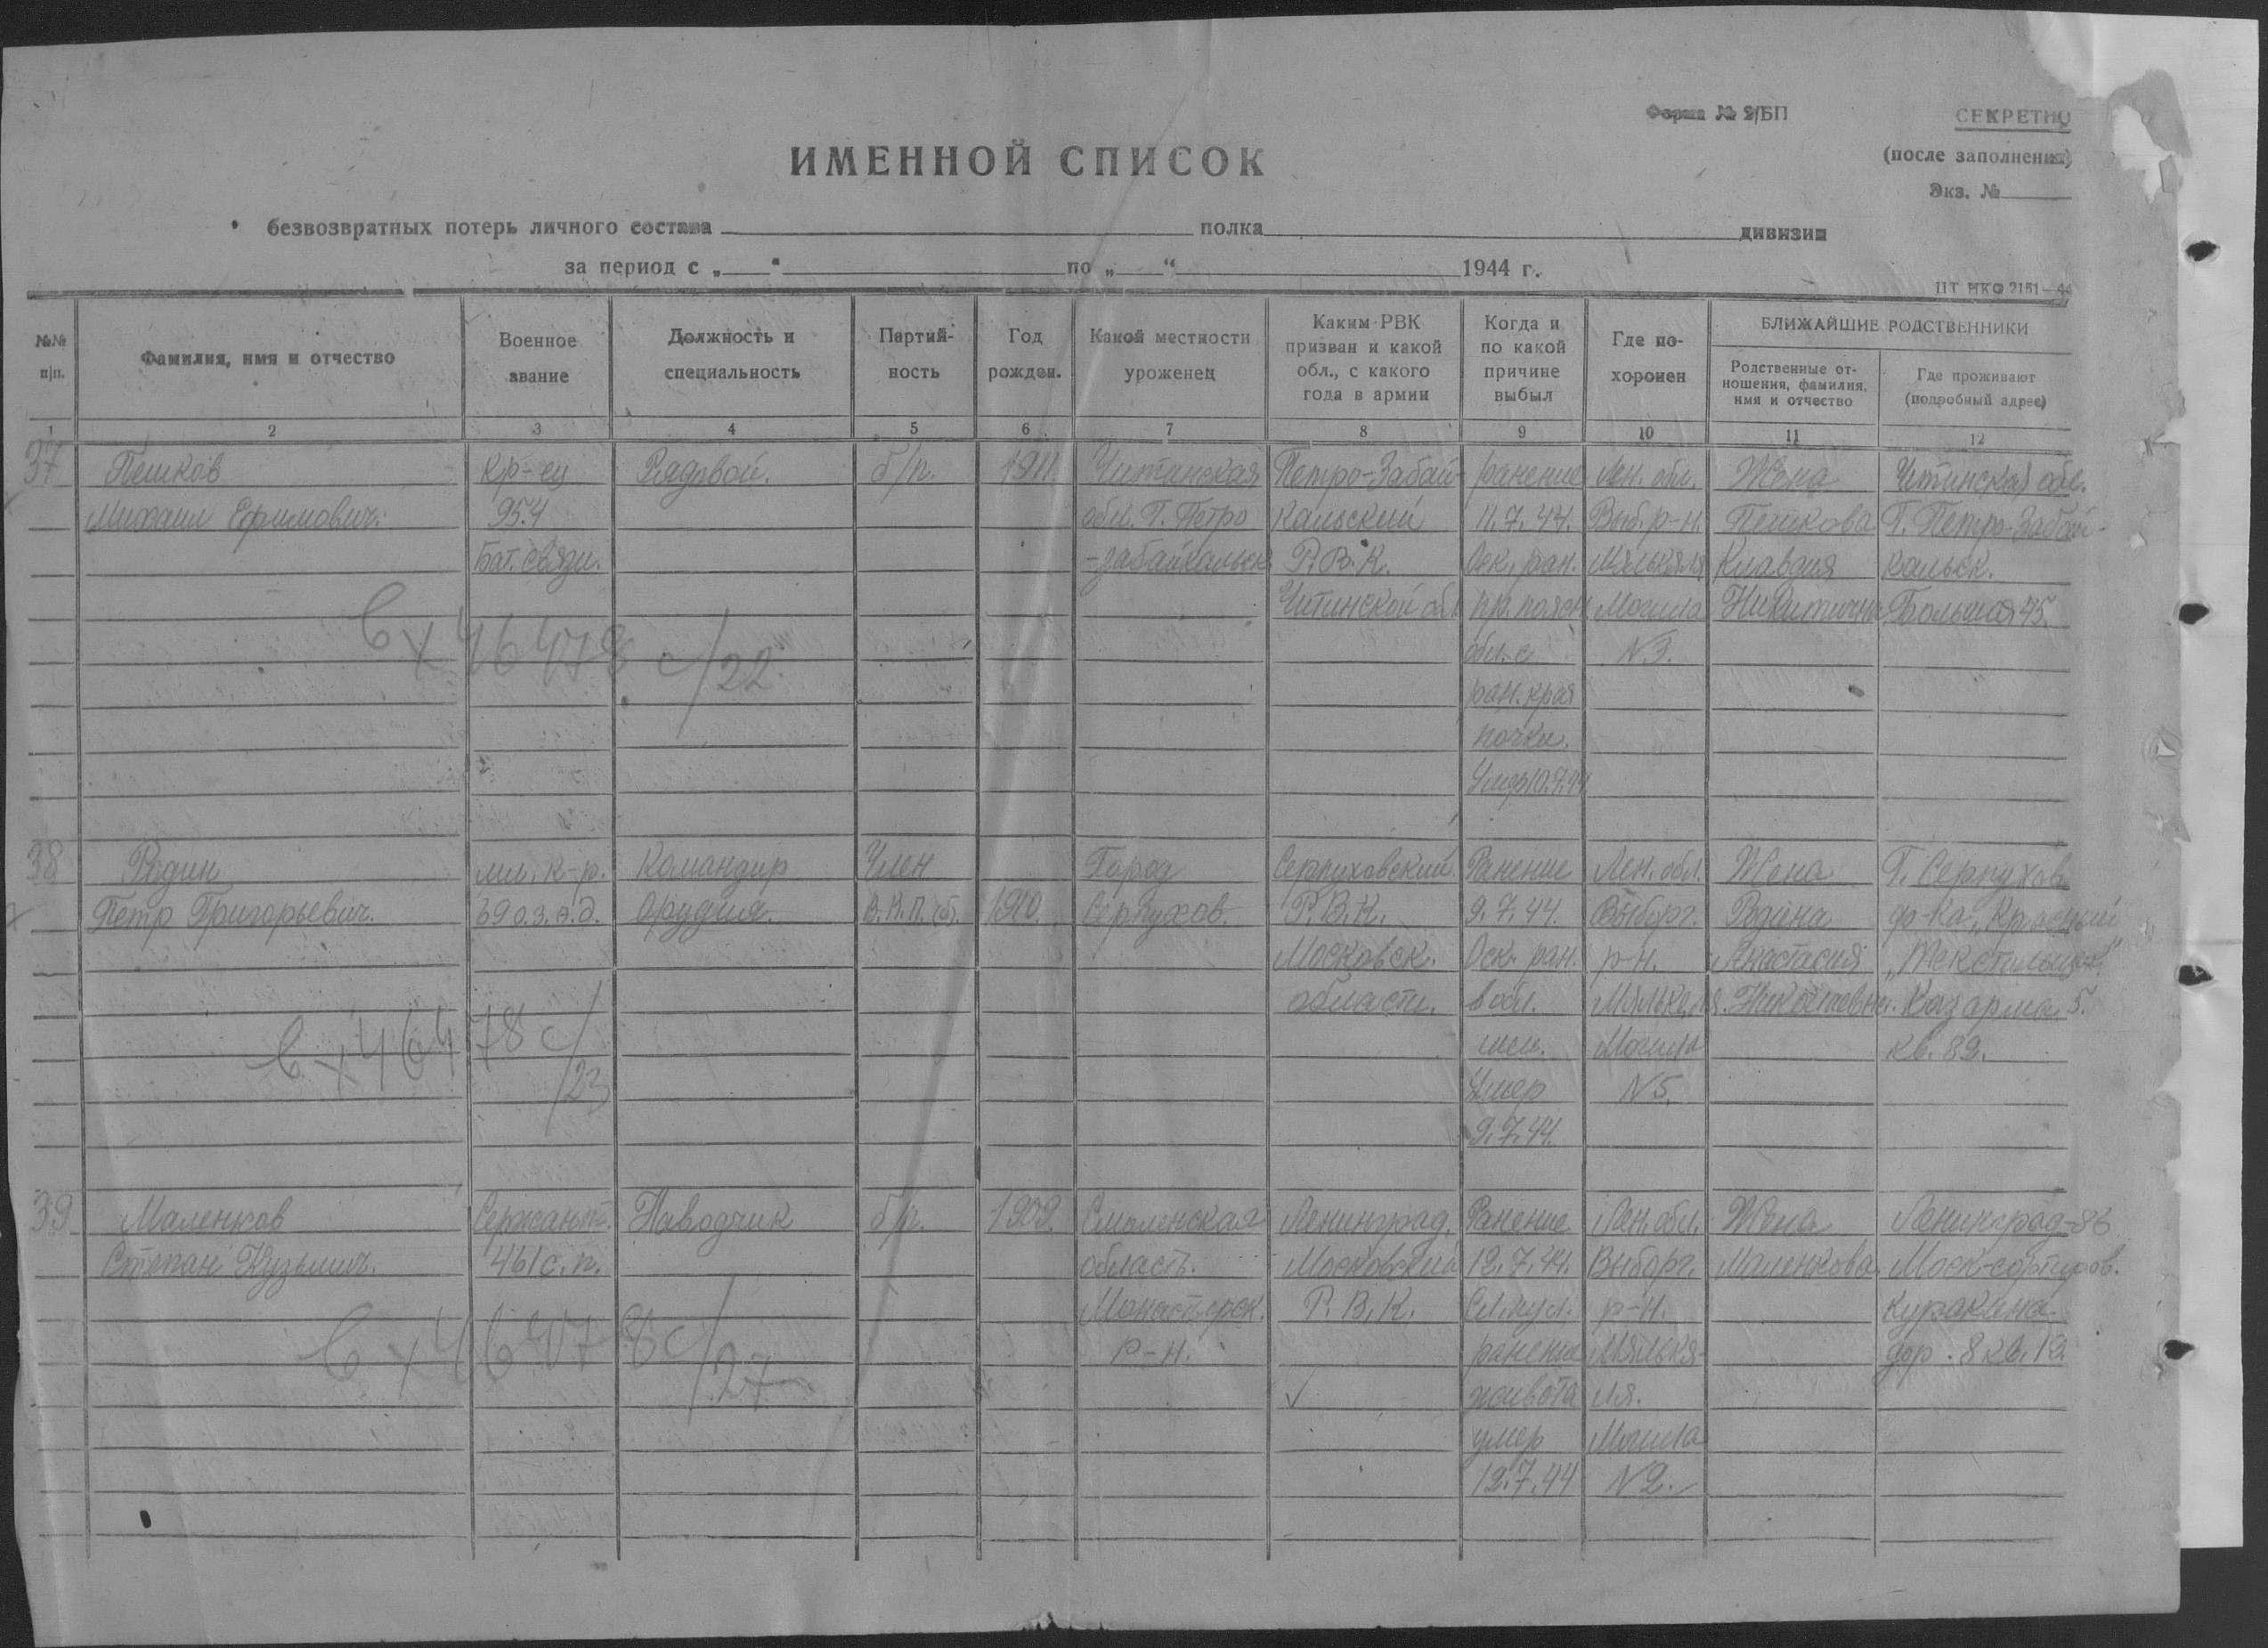 Форма № 2/БП
СЕКРЕТНО
(после заполнения)
Экз. №
ИМЕННОЙ СПИСОК
безвозвратных потерь личного состава полка дивизии
за период с „ “ по „ “ 1944 г.
ПТ НКО 2151—44
№№ п|п.
Фамилия, имя и отчество
Военное звание
Должность и специальность
Партий-ность
Год рожден.
Какой местности уроженец
Каким РВК призван и какой обл., с какого года в армии
Когда и по какой причине выбыл
Где по-хоронен
БЛИЖАЙШИЕ РОДСТВЕННИКИ
Родственные от-ношения, фамилия, имя и отчество
Где проживают (подробный адрес)
1 2 3 4 5 6 7 8 9 10 11 12
37 Пешков кр-ец Рядовой. б/п. 1911 Читинская Петро-Забай- ранение Лен. обл. Жена Читинская обл.
Михаил Ефимович. 954 обл. Г. Петро кальский 11.7.44. Выб. р-н. Пешкова Г. Петро-Забай-
Бат. связи. -забайкальск Р.В.К. Оск. ран. Мялькяля Клавдия кальск.
Читинской обл. пр. поясн. Могила Никитична Большая 75.
вх 46478 с/22 обл. с N 3.
ран. края
почки.
Умер 10.7.44
38 Родин мл. к-р. Командир Член Город Серпуховский Ранение Лен. обл. Жена Г. Серпухов
Петр Григорьевич. 39 о.з.а.д. Орудия. В.К.П.(б). 1910. Серпухов. Р.В.К. 9.7.44. Выборг. Родина ф-ка „Красный
Московск. Оск. ран. р-н. Анастасия „Текстильщик“
области. в обл. Мялькяля. Николаевна. Казарма 5.
вх 46478 с/23 шеи. Могила кв. 89.
Умер N 5.
9.7.44
39 Маленков Сержант. Наводчик б/п. 1909. Смоленская Ленинград. Ранение Лен. обл. Жена Ленинград-86
Степан Кузьмич. 461 с.п. область. Московский 12.7.44. Выборг. Маленкова Моск-сортиров.
Монастырск. Р.В.К. Сл. пул. р-н. куракина
вх 46478 с/27 р-н. ранение Мялькя- дор. 8 кв. 12.
живота ля.
умер Могила
12.7.44 N 2.